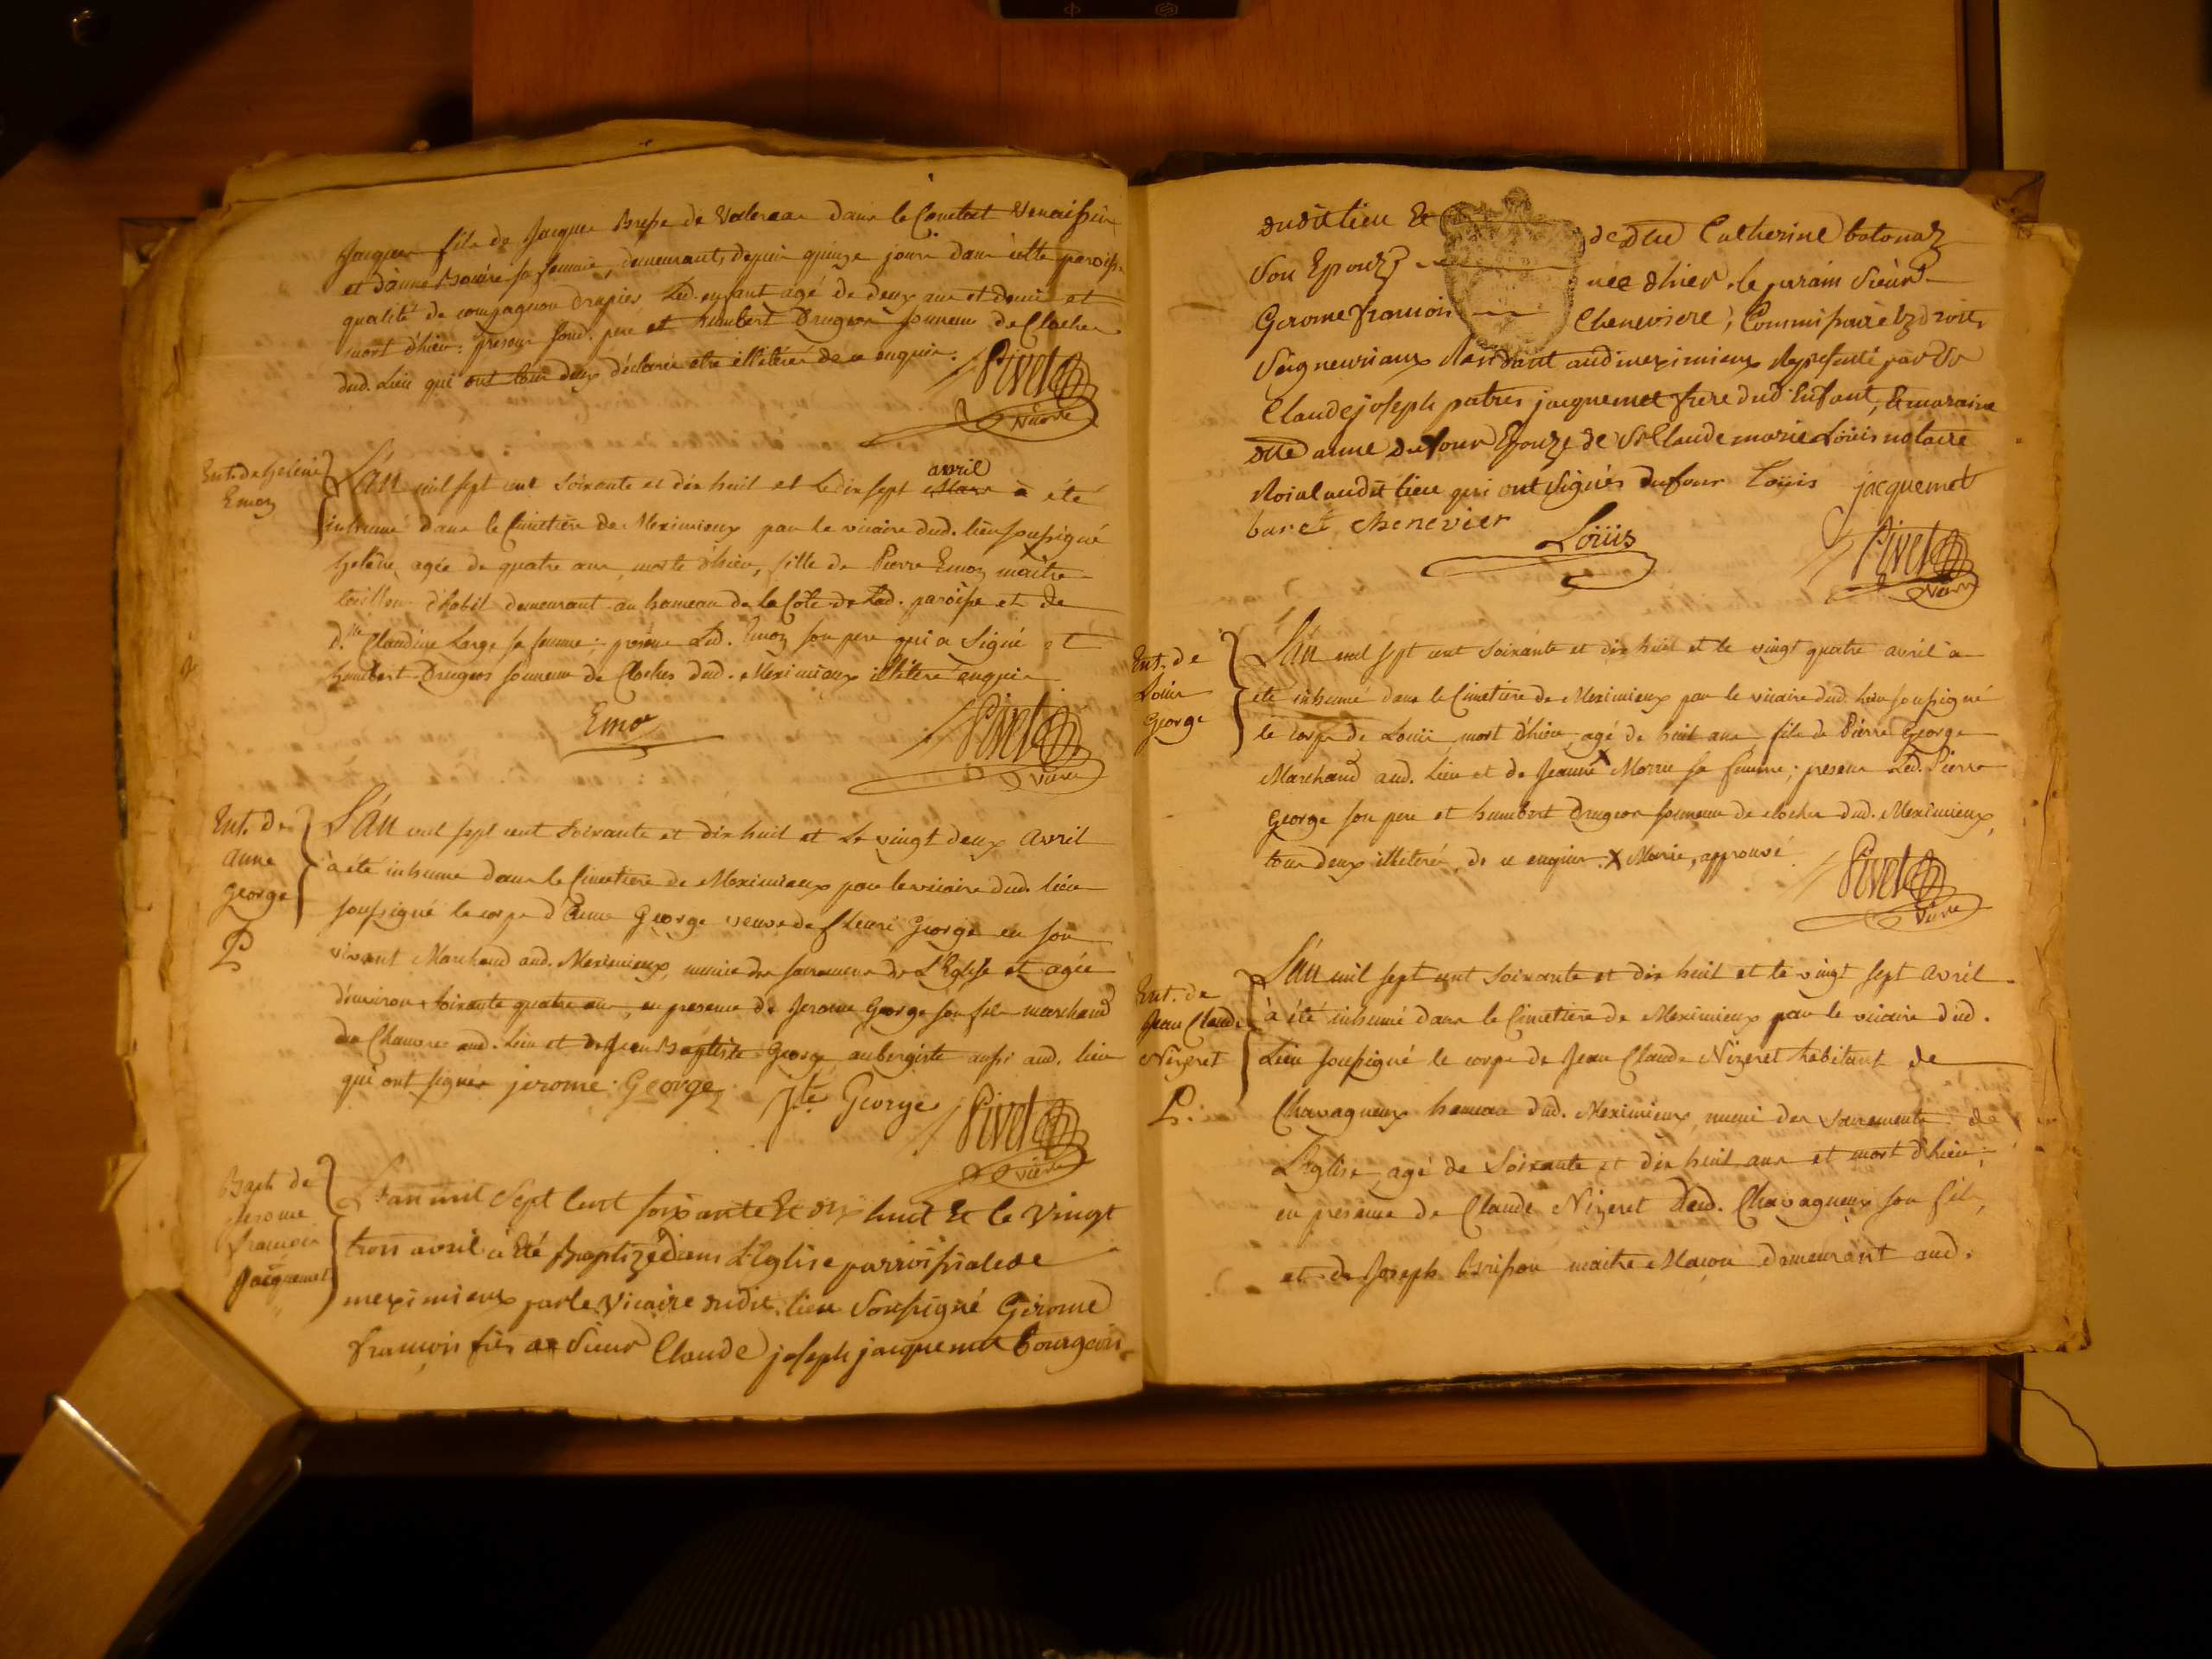 Jacques fils de Jacques Bresse de Valereas dans le Comtat Venaissin
et d'anne sa femme, demeurants depuis quinze jours dans cette paroisse
qualité de compagnon drapier led. enfant agé de deux ans et demi et
mort d'hier: presens sond. pere et humbert Drugeon sonneur de Cloches
dud. Lieu qui ont tous deux déclarés etre illitérés de ce enquis.
Pivet
vicaire
Ent. de helene
Emoz
L'an mil sept cent soixante et dix huit et le dix sept Mars avril a été
inhumé dans le Cimetiere de Meximieux par le vicaire dud. lieu soussigné
helene, agée de quatre ans, morte d'hier, fille de Pierre Emoz maitre
tailleur d'habit demeurant au hameau de la Côte de Lad. paroisse et de
d.lle Claudine Large sa femme: presens Led. Emoz son pere qui a signé et
humbert Drugeon sonneur de Cloches dud. Meximieux illiteré enquis
Emoz
Pivet
vicaire
Ent. de
Anne
George
P
L'an mil sept cent soixante et dix huit et le vingt deux avril
à été inhumé dans le Cimetiere de Meximieux par le vicaire dud. lieu
soussigné le corps d'Anne George veuve de fleuri George en son
vivant Marchand aud. Meximieux, munie des sacremens de L'Eglise et agée
d'environ soixante quatre ans, en presence de Jerome George son fils marchand
de Chanvre aud. Lieu et de Jean Baptiste George aubergiste aussi aud. lieu
qui ont signés jerome George
Jte George
Pivet
vicaire
Bapt. de
Jerome
françois
Jacquemet
L'an mil sept cent soixante et dix huit et le vingt
trois avril a été Baptizé dans L'Eglise parroissiale de
meximieux par le vicaire dudit lieu soussigné Gerome
françois fils de sieur Claude joseph jacquemet Bourgeois
dudit lieu et de dlle Catherine botonaz
son Epouze née d'hier. le parain sieur
Gerome francois Cheneviere, Commissaire ez droits
seigneuriaux residant audi meximieux representé par sr
Claude joseph patrès jacquemet frere dud. Enfant, et maraine
dlle anne dufour Epouze de Sr Claude marie Loüis notaire
Roial audit lieu qui ont signés dufour Loüis jacquemet
chenevier
Loüis
Pivet
vicaire
Ent. de
Loüis
George
L'an mil sept cent soixante et dix huit et le vingt quatre avril a
été inhumé dans le Cimetiere de Meximieux par le vicaire dud. lieu soussigné
le corps de Loüis mort d'hier agé de huit ans, fils de Pierre George
Marchand aud. Lieu et de Jeanne X Morrie sa femme; presens Led. Pierre
George son pere et humbert Drugeon sonneur de cloches dud. Meximieux,
tous deux illiterés de ce enquis. X Morrie, approuvé.
Pivet
vicaire
Ent. de
Jean Claude
Nizeret
P.
L'an mil sept cent soixante et dix huit et le vingt sept avril
à été inhumé dans le Cimetiere de Meximieux par le vicaire dud.
Lieu soussigné le corps de Jean Claude Nizeret habitant de
Chavagneux hameau dud. Meximieux, muni des sacrements de
L'Eglise, agé de soixante et dix huit ans et mort d'hier;
en presence de Claude Nizeret dud. Chavagneux son fils,
et de Joseph Brisson maitre Maçon demeurant aud.